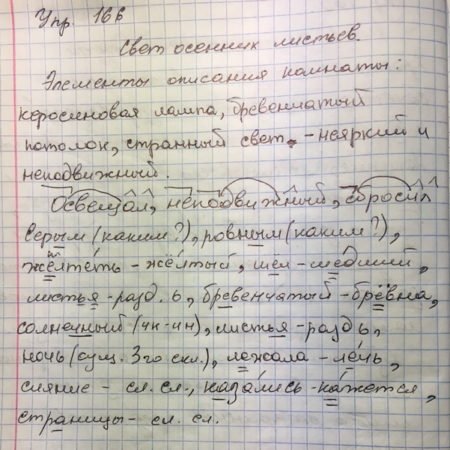 Упр. 166
Свет осенних листьев.
Элементы описания комнаты:
керосиновая лампа, бревенчатый
потолок, странный свет - неяркий и
неподвижный.
Освещал, неподвижный, сбросил
серым (каким?), ровным (каким?),
желтеть - жёлтый, шёл - шедший,
листья - разд. ь, бревенчатый - брёвна,
солнечный (чн-нн), листья - раздь,
ночь (сущ. 3го скл.), лежала - лечь,
сияние - сл. сл., казались - кажется,
страницы - сл. сл.